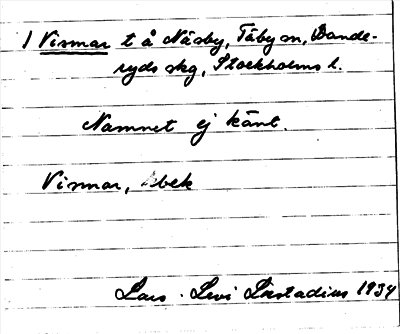 1 Vismar t å Näsby, Täby sn, Dande-
ryds skg, Stockholms l.
Namnet ej känt.
Vismar, obek
Lars-Levi Læstadius 1934